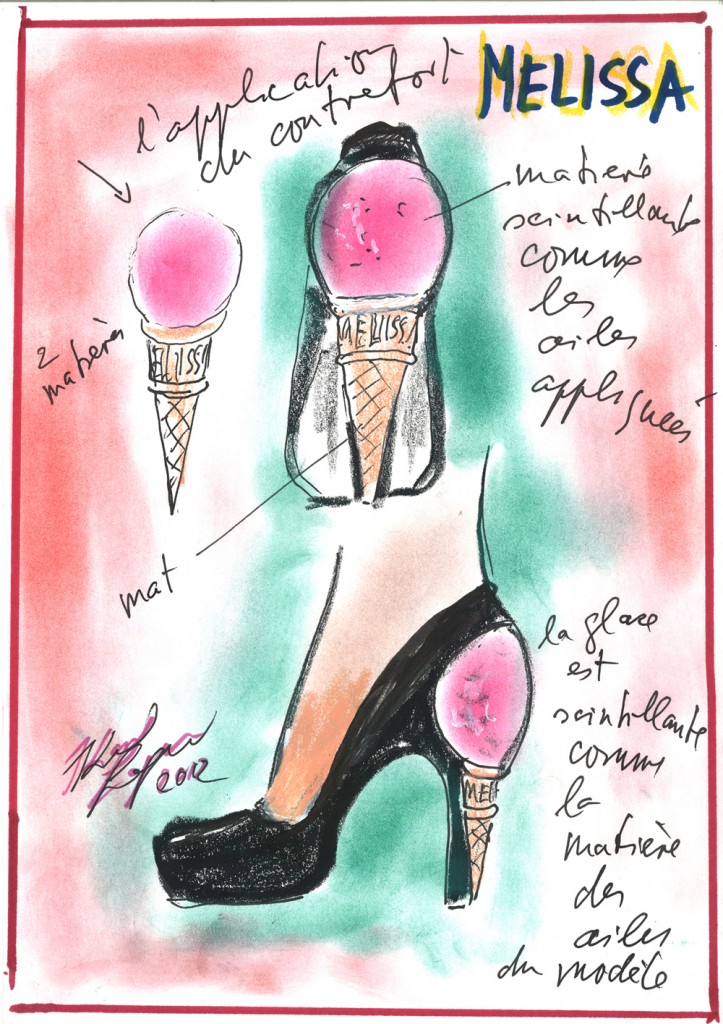 MELISSA
l'application
du contrefort
matière
scintillante
comme
les
ailes
appliquées
2
matières
MELISSA
MELISSA
mat
la glace
est
scintillante
comme
la
matière
des
ailes
du modèle
MEL
Karl
Lagerfeld
2012